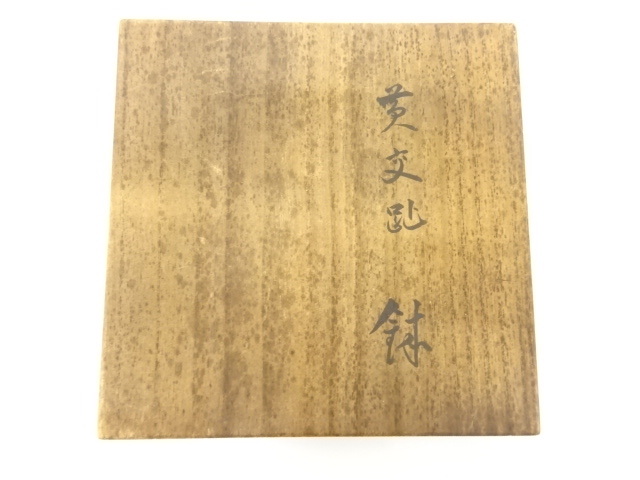 黄交趾 鉢